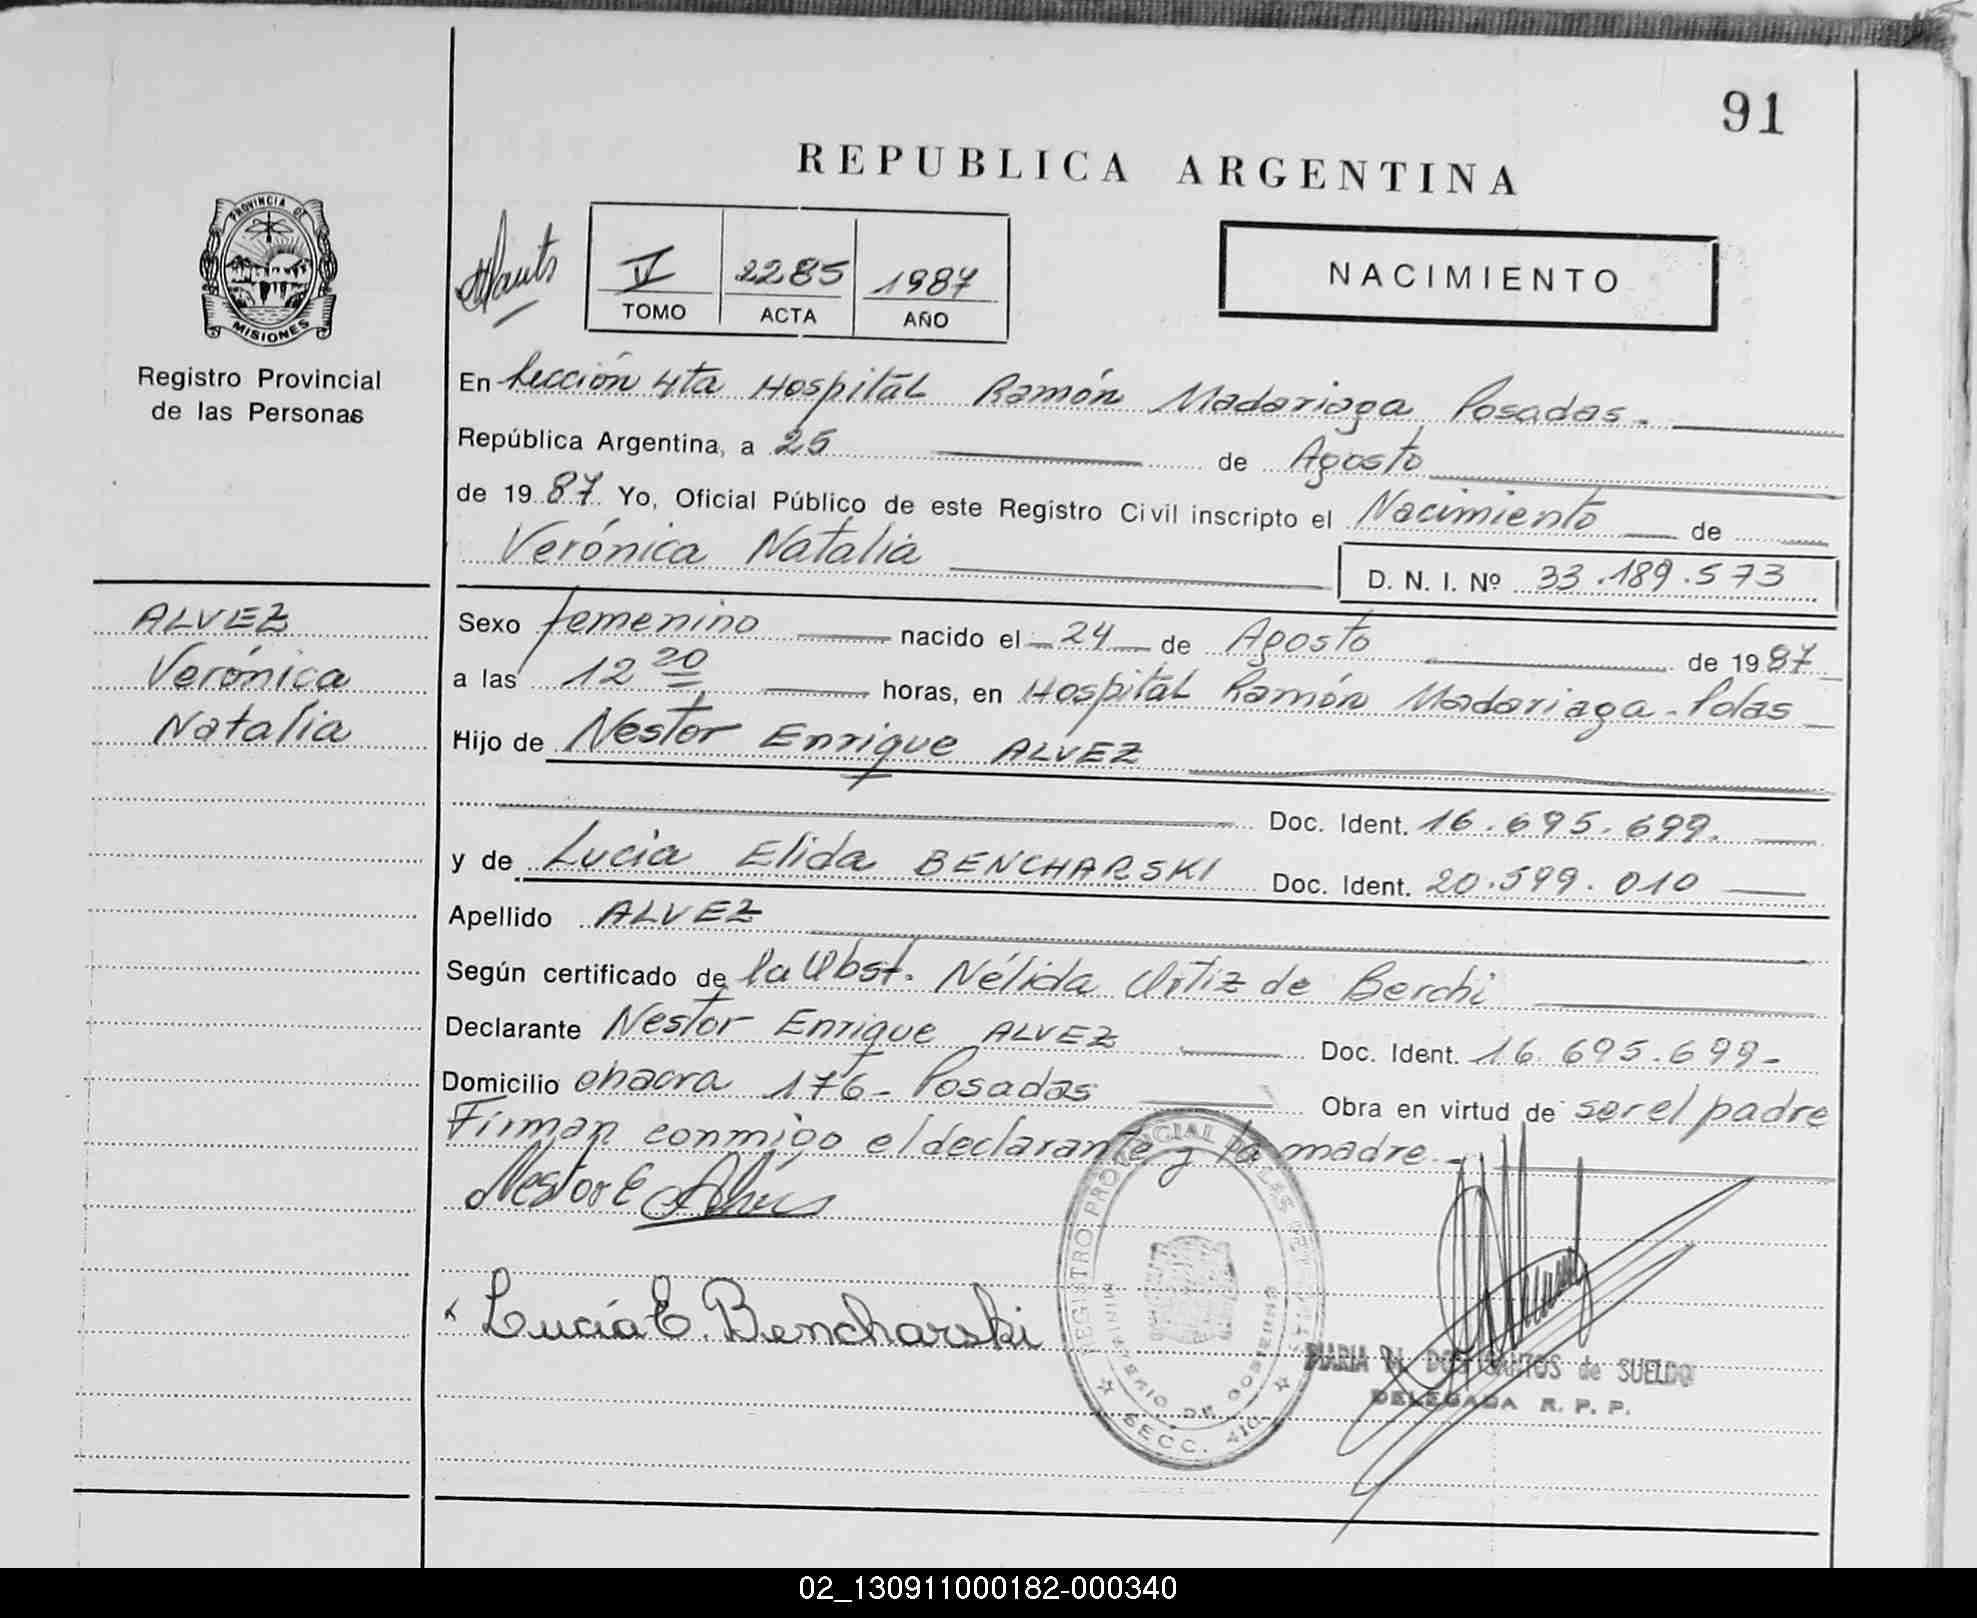 91
REPUBLICA ARGENTINA
PROVINCIA DE
MISIONES
Registro Provincial
de las Personas
V 2285 1987
TOMO ACTA AÑO
NACIMIENTO
En Sección 4ta Hospital Ramón Madariaga Posadas.
República Argentina, a 25 de Agosto
de 1987 Yo, Oficial Público de este Registro Civil inscripto el Nacimiento de
Verónica Natalia
D. N. I. Nº 33.189.573
ALVEZ
Verónica
Natalia
Sexo femenino nacido el 24 de Agosto de 1987
a las 12 20 horas, en Hospital Ramón Madariaga - Pdas
Hijo de Nestor Enrique ALVEZ
Doc. Ident. 16.695.699.
y de Lucia Elida BENCHARSKI Doc. Ident. 20.599.010
Apellido ALVEZ
Según certificado de la Obst. Nélida Ortiz de Berchi
Declarante Nestor Enrique ALVEZ Doc. Ident. 16.695.699-
Domicilio chacra 176- Posadas Obra en virtud de ser el padre
Firman conmigo el declarante y la madre.-
Nestor E Alves
Lucía E. Bencharski
REGISTRO PROVINCIAL DE LAS PERSONAS
MINISTERIO DE GOBIERNO
SECC. 4ta
MARIA M. DOS SANTOS de SUELDO
DELEGADA R. P. P.
02_130911000182-000340